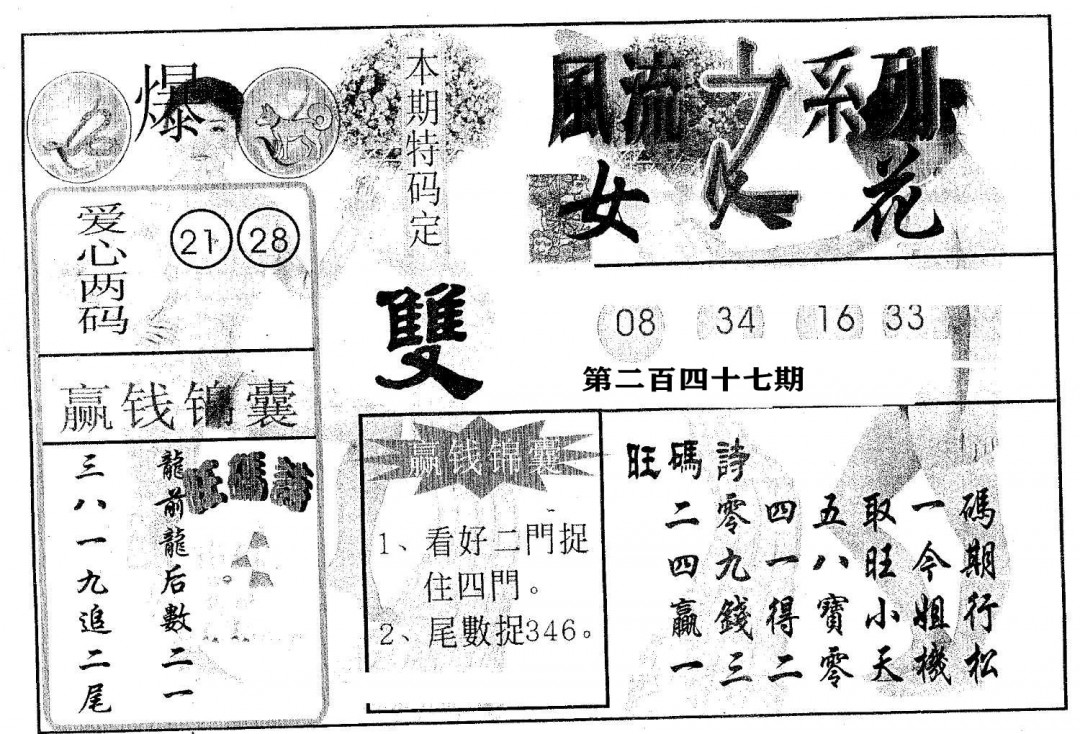 爆
爱心两码
21 28
赢钱锦囊
龍前龍后數二一
三八一九追二尾
旺碼詩
本期特码定
雙
風流之系列
女人花
08 34 16 33
第二百四十七期
赢钱锦囊
1、看好二門捉
住四門。
2、尾數捉346。
旺碼詩
二零四五取一碼
四九一八旺今期
贏錢得寶小姐行
一三二零天機松